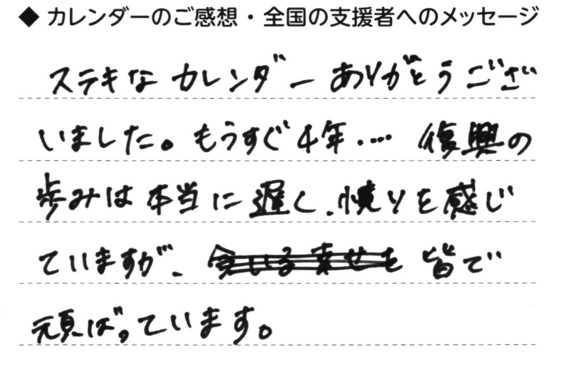 ◆ カレンダーのご感想・全国の支援者へのメッセージ
ステキなカレンダーありがとうござ
いました。もうすぐ4年… 復興の
歩みは本当に遅く、憤りを感じ
ていますが、今いる幸せを皆で
頑ばっています。